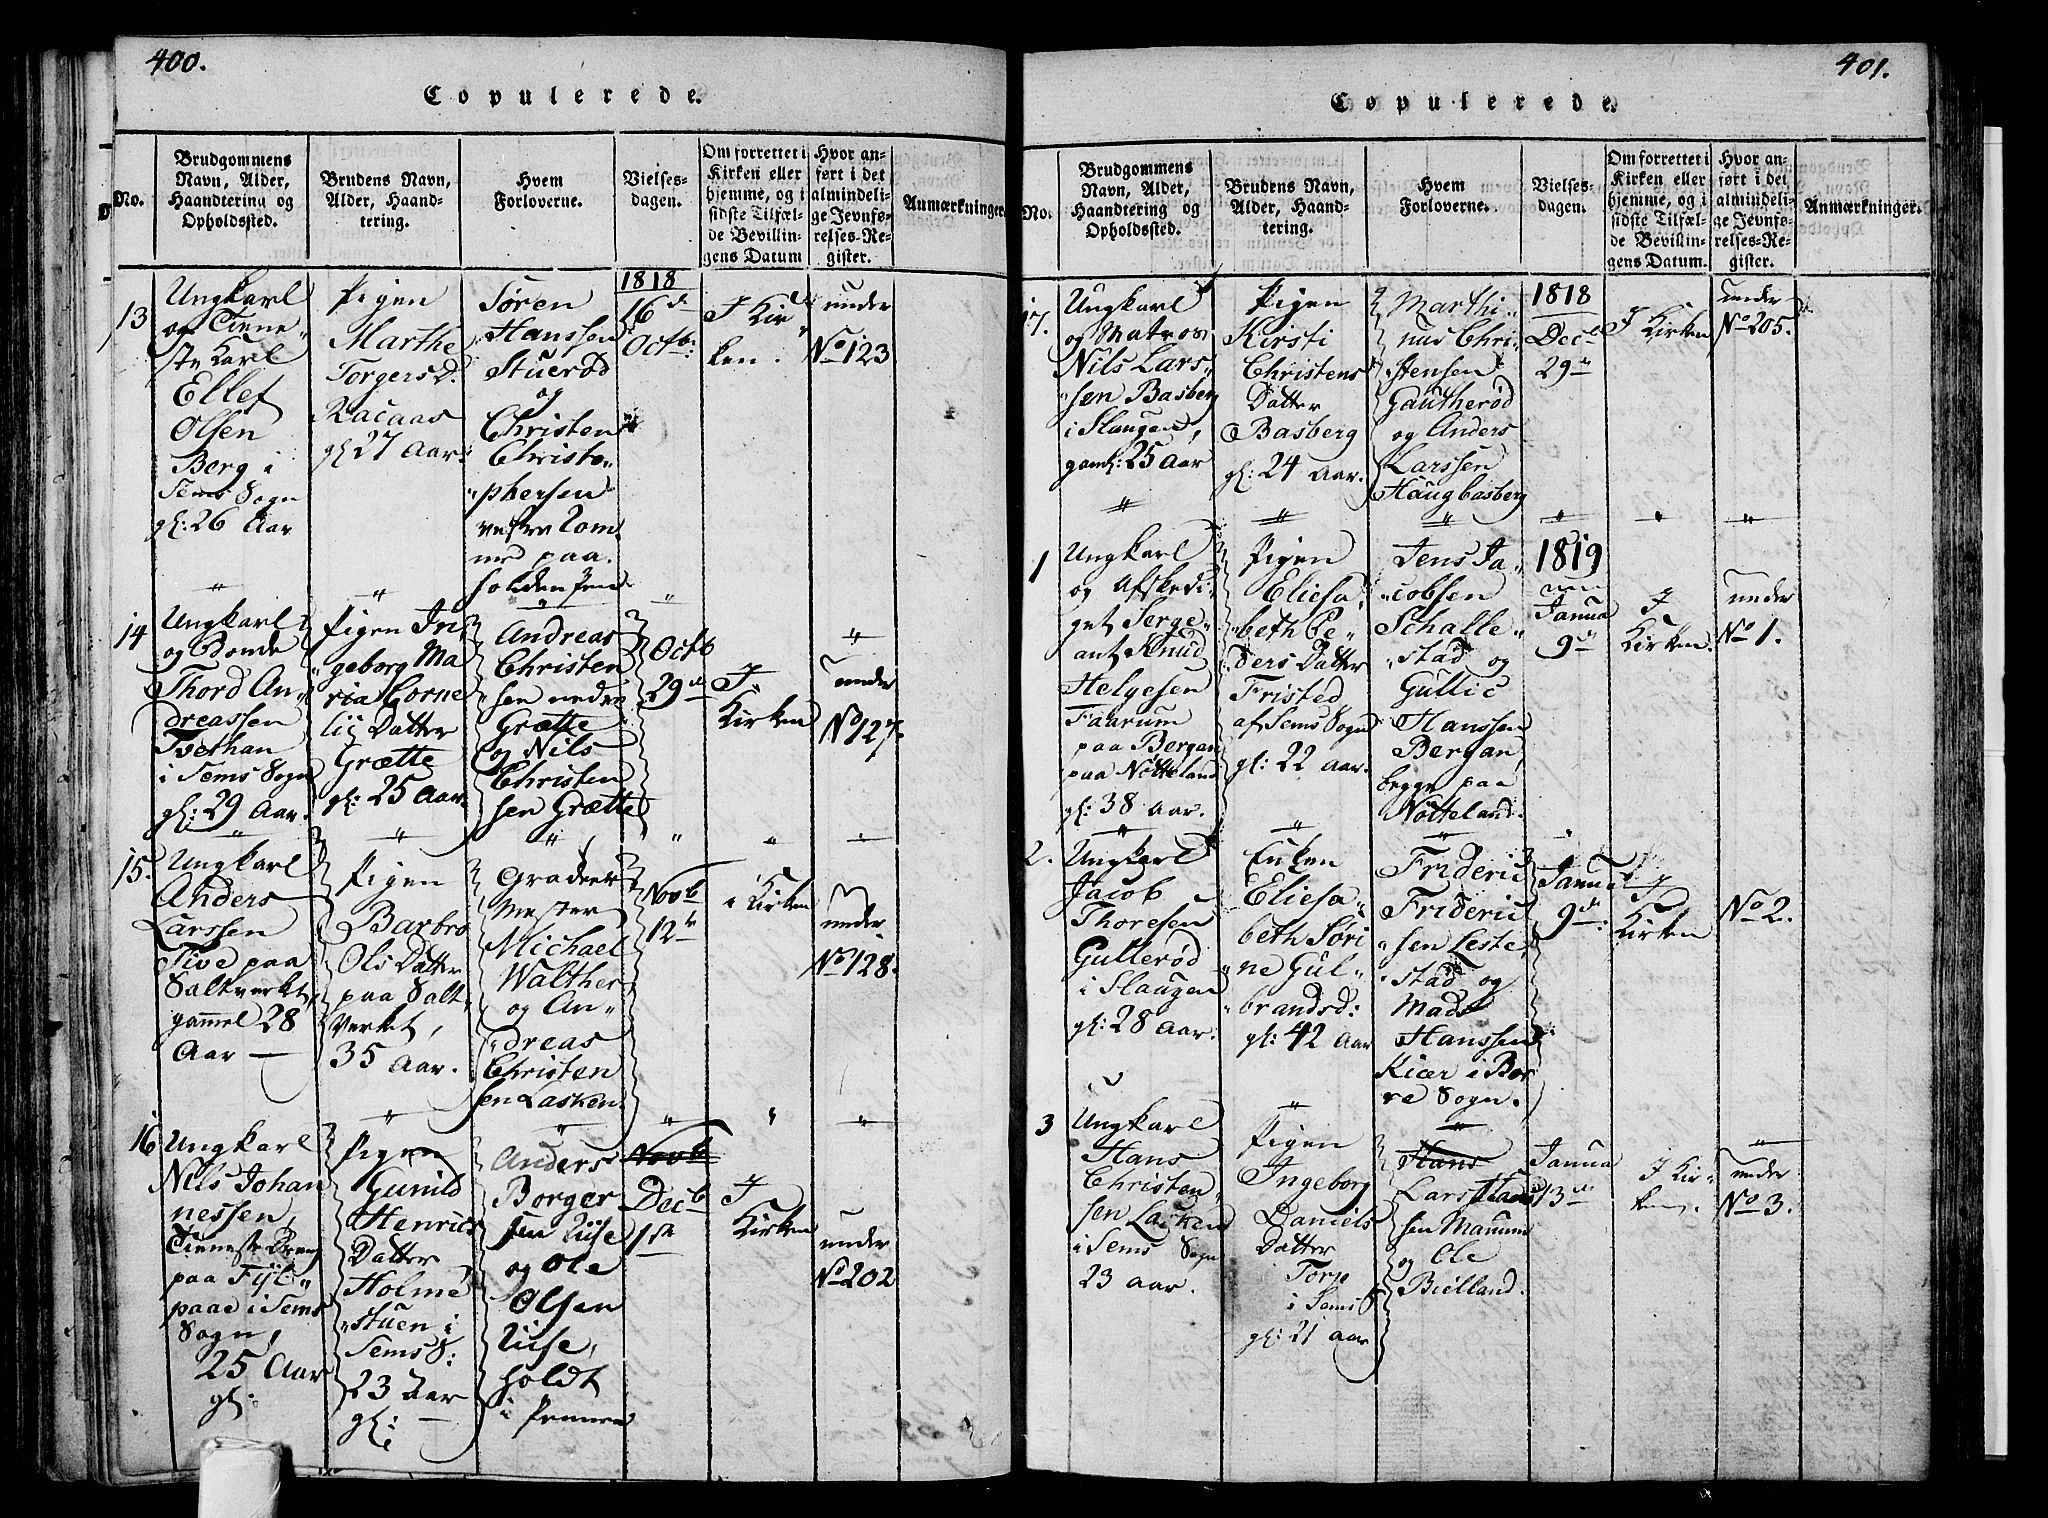 400.
Copulerede.
No.
Brudgommens
Navn, Alder,
Haandtering og
Opholdssted.
Brudens Navn,
Alder, Haand-
tering.
Hvem
Forloverne.
Vielses-
dagen.
Om forrettet i
Kirken eller
hjemme, og i
sidste Tilfæl-
de Bevillin-
gens Datum
Hvor an-
ført i det
almindeli-
ge Jevnfø-
relses-Re-
gister.
Anmærkninger.
13
Ungkarl
og Tiene-
ste Karl
Ellef
Olsen
Berg i
Sems Sogn
gl: 26 Aar
Pigen
Marthe
Torgersd.
Racaas
gl 27 Aar.
Søren
Hanssen
Stuerød
og
Christen
Christo-
phersen
vestre Tom-
med paa.
1818
16de
Octb:
I Kir
ken.
under
No 123
14
Ungkarl
og Bonde
Thord An-
dreassen
Tvethan
i Sems Sogn
gl: 29 Aar.
Pigen In
geborg Ma
ria Corne
lii Datter
Grætte
gl: 25 Aar.
Andreas
Christen
sen nedre
Grætte
og Nils
Christen
sen Grætte
Octb
29de
I
Kirken
under
No 127.
15.
Ungkarl
Anders
Larssen
Five paa
Saltverket,
gammel 28
Aar
Pigen
Barbro
Ols Datter
paa Salt-
verket,
35 Aar.
Gradeer
Mester
Michael
Walther
og An-
dreas
Christen
sen Lasken.
Novb
12te
i Kirken
under
No 128.
16
Ungkarl
Nils Johan
nessen,
Tieneste Dreng
paa Fyll-
paae i Sems
Sogn,
25 Aar
gl:
Pigen
Gunild
Henrics
Datter
Holme
stuen i
Sems S:
23 Aar
gl:
Anders
Borger
sen Riise
og Ole
Olsen
Riise,
holdt
i Pennen
Novb
Decb
1ste
I
Kirken
under
No 202
401.
Copulerede.
No.
Brudgommens
Navn, Alder,
Haandtering og
Opholdssted.
Brudens Navn,
Alder, Haand-
tering.
Hvem
Forloverne.
Vielses-
dagen.
Om forrettet i
Kirken eller
hjemme, og i
sidste Tilfæl-
de Bevillin-
gens Datum.
Hvor an-
ført i det
almindeli-
ge Jevnfø-
relses-Re-
gister.
Anmærkninger.
17.
Ungkarl
og Matros
Nils Lars-
sen Basberg
i Slaugen,
gaml: 25 Aar
Pigen
Kirsti
Christens
Datter
Basberg
gl: 24 Aar.
Marthi-
nus Chri-
stensen
Gautherød
og Anders
Larssen
Haugbasberg
1818
Dec
29de
I Kirken
under
No 205.
1
Ungkarl
og Afskedi-
get Serge-
ant Knud
Helgesen
Faarum
paa Bergan
paa Nøtteland
gl: 38 Aar.
Pigen
Eliesa-
beth Pe-
ders Datter
Fristed
af Sems Sogn
gl: 22 Aar.
Jens Ja-
cobsen
Schalle-
stad og
Gullic
Hanssen
Bergan,
begge paa
Nötteland.
1819
Janua
9de
I
Kirken.
under
No 1.
2.
Ungkarl
Jacob
Thoresen
Gullerød
i Slaugen
gl: 28 Aar.
Enken
Eliesa-
beth Søri
ne Gul-
brandsd:
gl: 42 Aar
Frideric
Frideric
sen Leste-
stad og
Mads
Hanssen
Kiær i Bor
re Sogn.
Janua
9de:
I
Kirken
No 2.
3
Ungkarl
Hans
Christen-
sen Lasken
i Sems Sogn
23 Aar.
Pigen
Ingeborg
Daniels
Datter
Torp
i Sems S
gl: 21 Aar
Hans
Lars Hans
sen Marum
og Ole
Bielland.
Janua
13de
I Kir-
ken.
under
No 3.